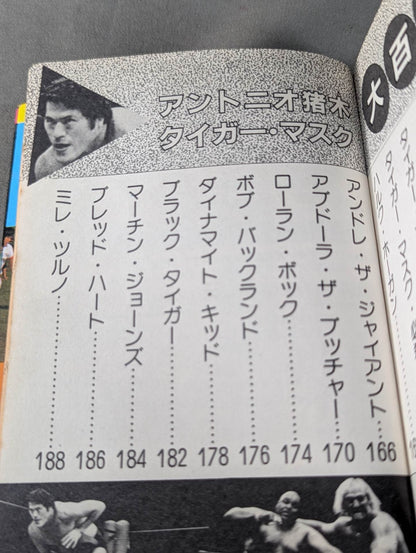 大百
アントニオ猪木
タイガー・マスク
アンドレ・ザ・ジャイアント……166
アブドーラ・ザ・ブッチャー……170
ローラン・ボック……174
ボブ・バックランド……176
ダイナマイト・キッド……178
ブラック・タイガー……182
マーチン・ジョーンズ……184
ブレッド・ハート……186
ミレ・ツルノ……188